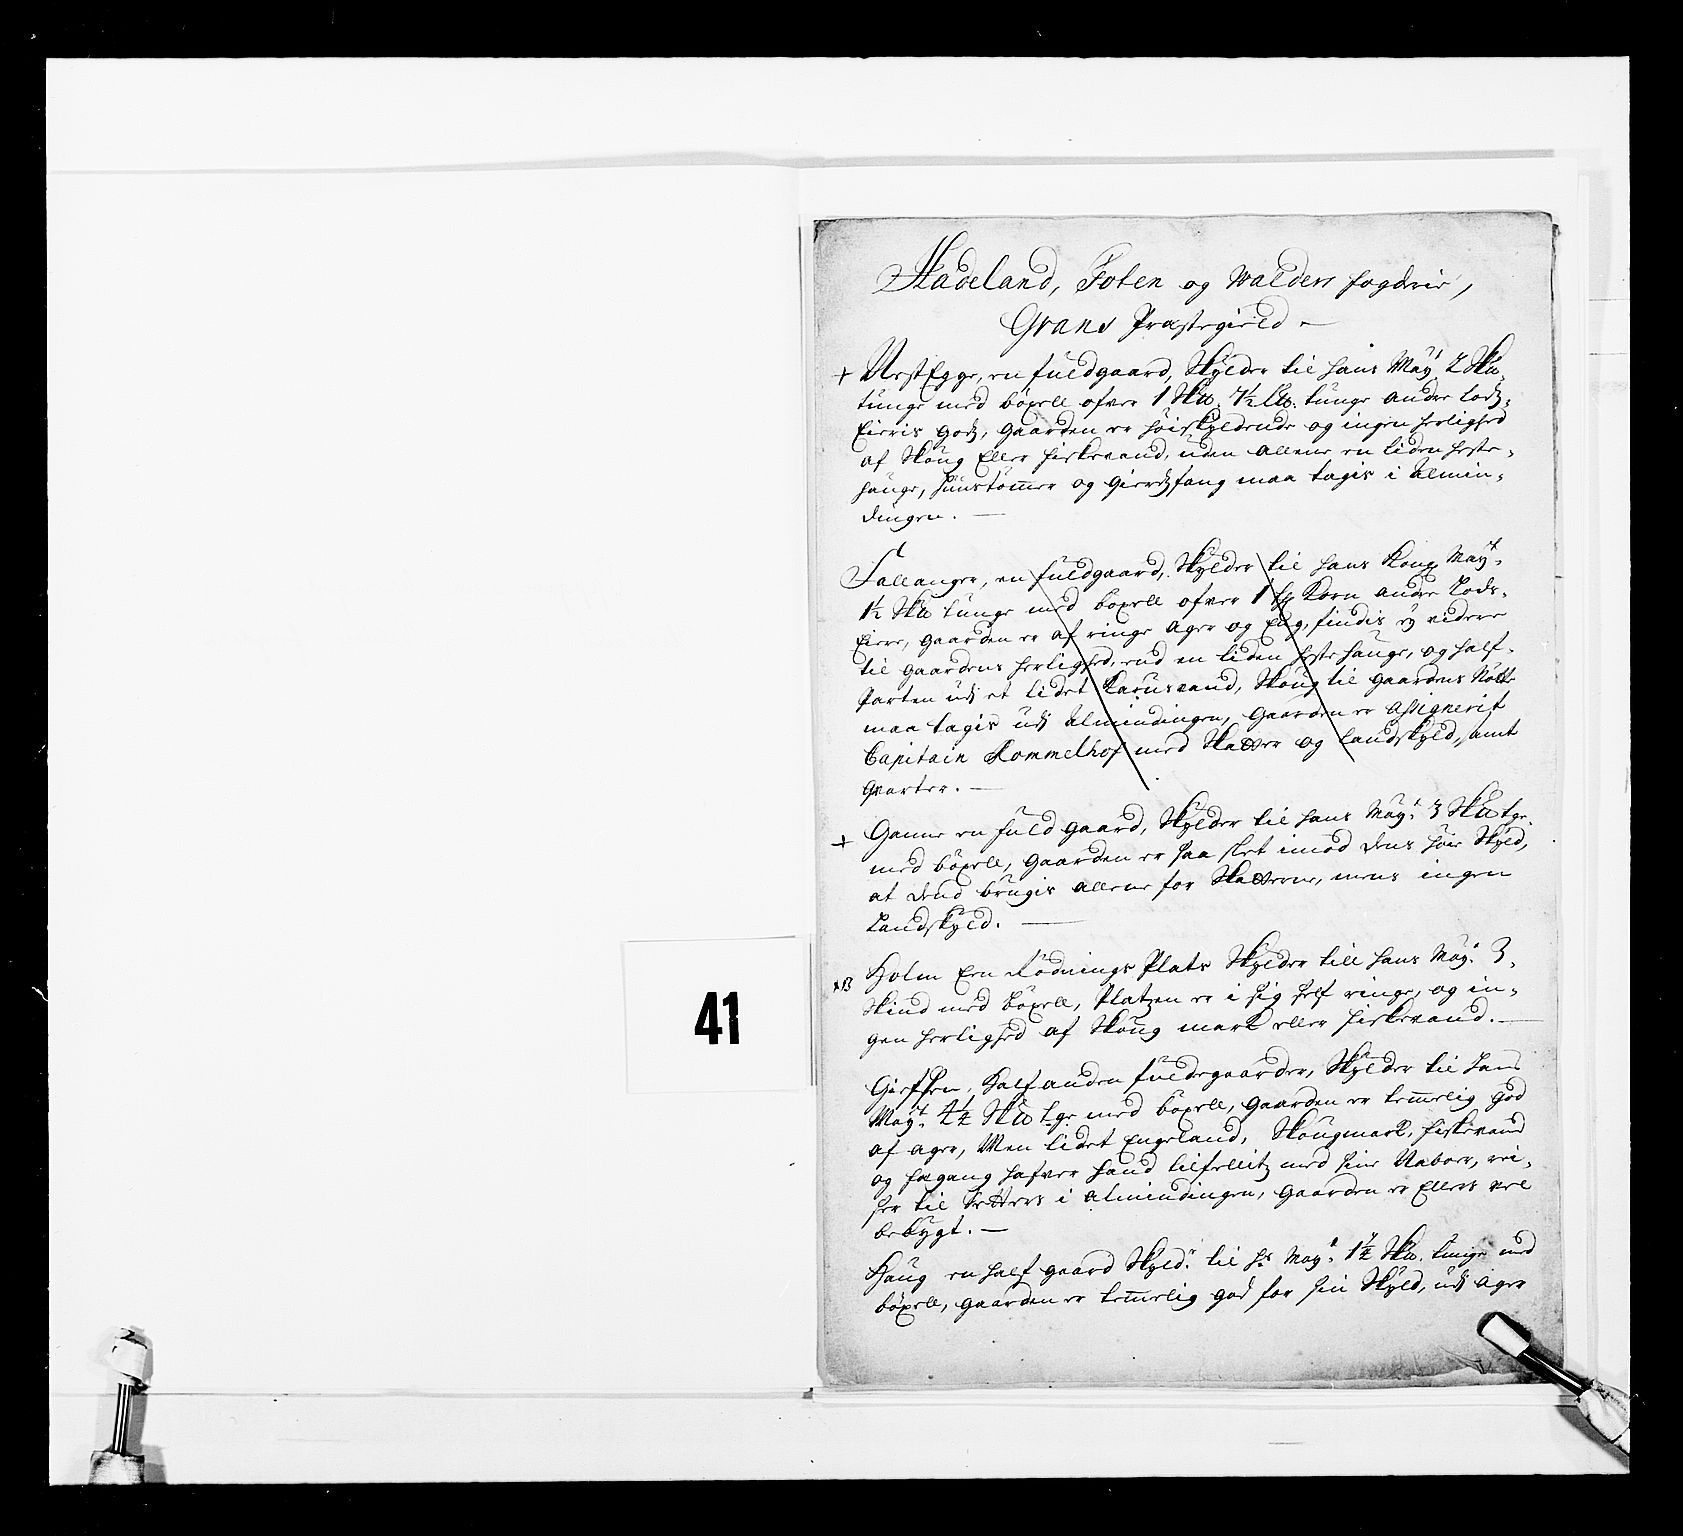 Hadeland, Toten og Walders fogderie,
Grans Præstegield –
+ VestEgge, en fuldgaard, Skylder til hans May.t 2 Sk℔.
tunge med böxell ofver 1 Sk℔. 7½ L℔. tunge andre lodz-
Eieris godz, gaarden er høiskyldende og ingen herlighed
af Skoug Eller fiskevand, uden allene en liden heste-
hauge, huustømer og gierdzfang maa tagis i Almin-
dingen. —
Tallanger, en fuldgaard, Skylder til hans Kong. May.t
1½ Sk℔ tunge med böxell ofver 1 Korn andre Lods-
Eiere, gaarden er af ringe ager og Eng, findis ey videre
til gaardens herlighed, end en liden hestehauge, og half-
parten udj et lidet Karusvand, Skoug til gaardens Nötte
maa tagis udj Almindingen, gaarden er assignerit
Capitain Rommelhof med Skatter og landskyld, samt
qvarter. —
+ Ganne en fuld gaard, Skylder til hans May.t 3 Sk℔ tge.
med böxell, gaarden er saa slet imod dens høie Skyld,
at dend brugis allene for Skatterne, mens ingen
Landskyld. —
NB Holm Een Rødnings Plats Skylder till hans May.t 3.
Skind med böxell, Platzen er i sig self ringe, og in-
gen herlighed af Skoug mark eller fiskevand. —
Gieffsen, Halfanden fuldegaarder, Skylder til hans
May.t 4½ Sk℔ tge. med böxell, gaarden er temelig god
af ager, Men lidet Engeland, Skougmark, fiskevand
og fægang hafver hand tilfellitz med sine Naboer, rei-
ser til Setters i almindingen, gaarden er Ellers vel
bebygt. —
Haug en half gaard Skyld.r til hs. May.t 1½ Sk℔. tunge med
böxell, gaarden er temelig god for sin Skyld, udj ager
41